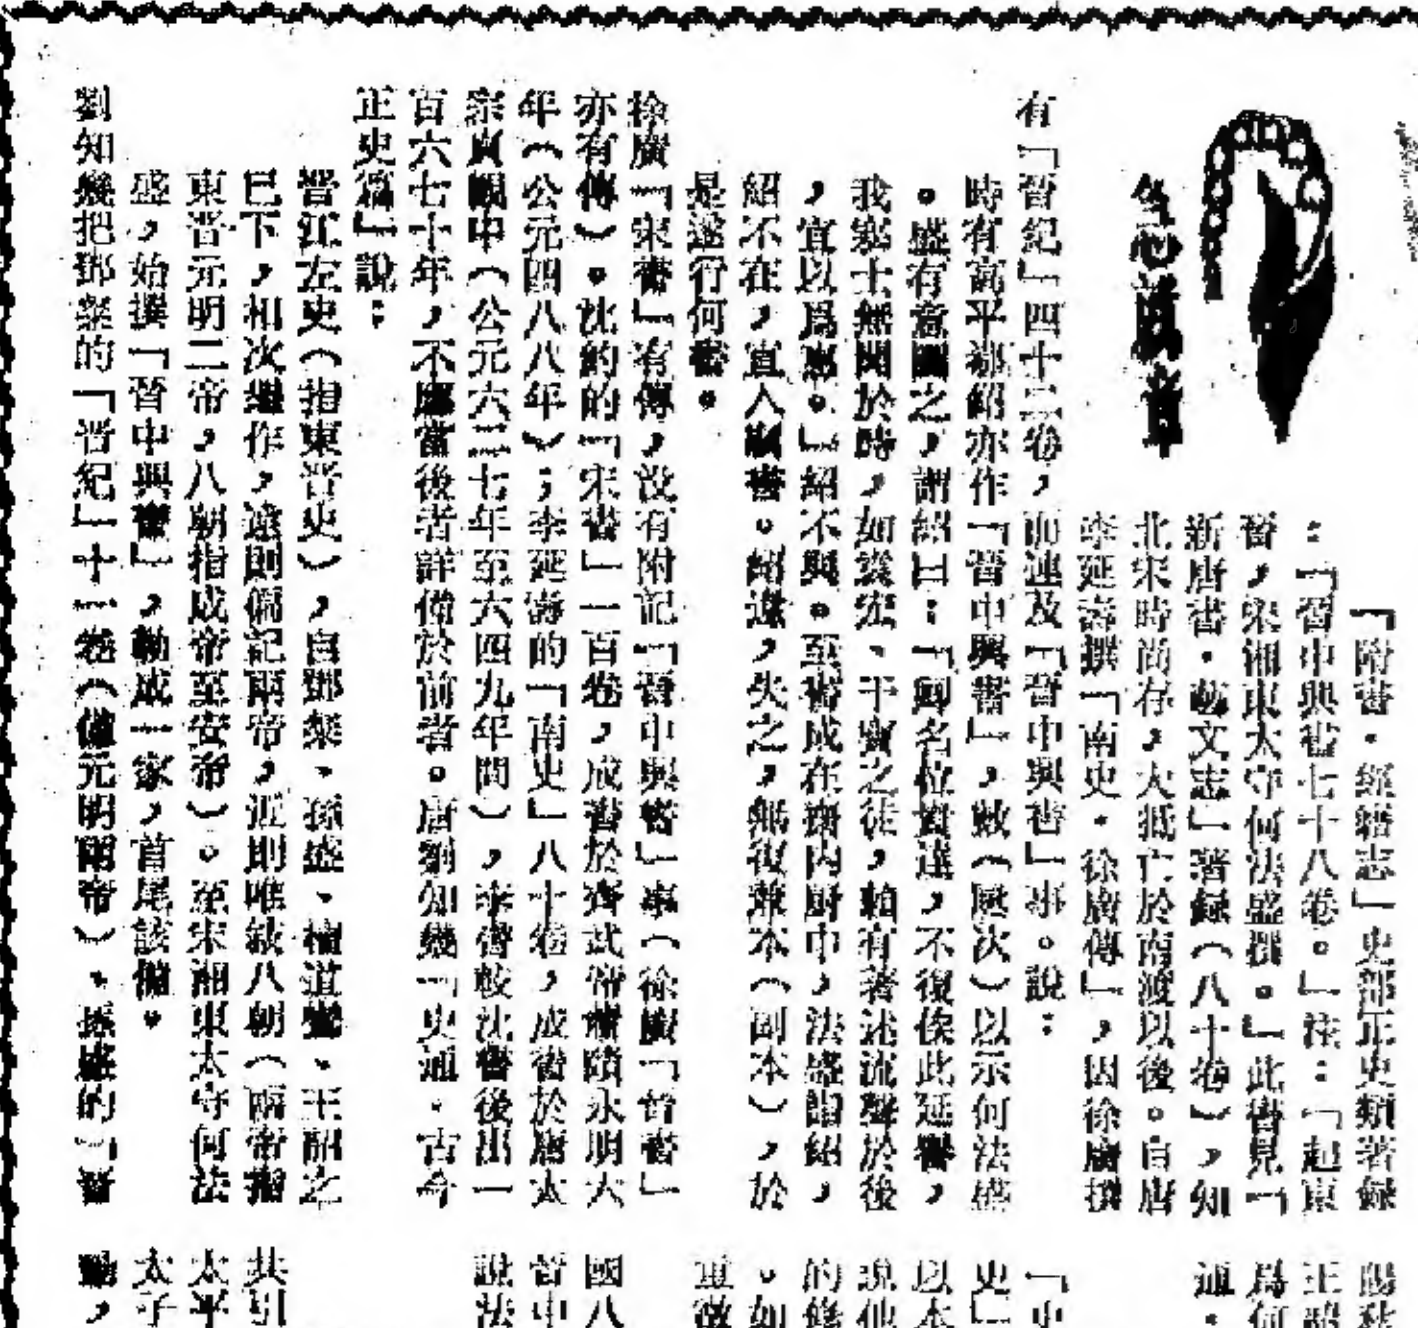 「附書·經籍志」史部正史類著錄
:「晉中興書七十八卷。」注:「起東
晉,宋湘東太守何法盛撰。」此書見「
新唐書·藝文志」著錄(八十卷),知
北宋時尚存,大抵亡於南渡以後。自唐
李延壽撰「南史·徐廣傳」,因徐廣撰
有「晉紀」四十二卷,而連及「晉中興書」事。說:
時有高平郗紹亦作「晉中興書」,數(屢次)以示何法盛
。盛有意圖之,謂紹曰:「卿名位貴達,不復俟此延譽,
我寒士無聞於時,如袁宏、干寶之徒,賴有著述流聲於後
,宜以爲惠。」紹不與。至書成在齋內厨中,法盛詣紹,
紹不在,直入竊書。紹還,失之,無復兼本(副本),於
是遂行何書。
徐廣「宋書」有傳,没有附記「晉中興書」事(徐廣「晉書」
亦有傳)。沈約的「宋書」一百卷,成書於齊武帝蕭賾永明六
年(公元四八八年);李延壽的「南史」八十卷,成書於唐太
宗貞觀中(公元六二七年至六四九年間),李書較沈書後出一
百六七十年,不應當後者詳備於前者。唐劉知幾「史通·古今
正史篇」說:
晉江左史(指東晉史),自鄧粲、孫盛、檀道鸞、王韶之
已下,相次繼作,遠則偏記兩帝,近則唯敍八朝(兩帝指
東晉元明二帝,八朝指成帝至安帝)。至宋湘東太守何法
盛,始撰「晉中興書」,勒成一家,首尾該備。
劉知幾把鄧粲的「晉紀」十一卷(僅元明兩帝)、孫盛的「晉
陽秋
王韶
爲何
通·
「中
史」
以本
說他
的修
。如
重做
國八
晉中
說法
共引
太平
太子
,